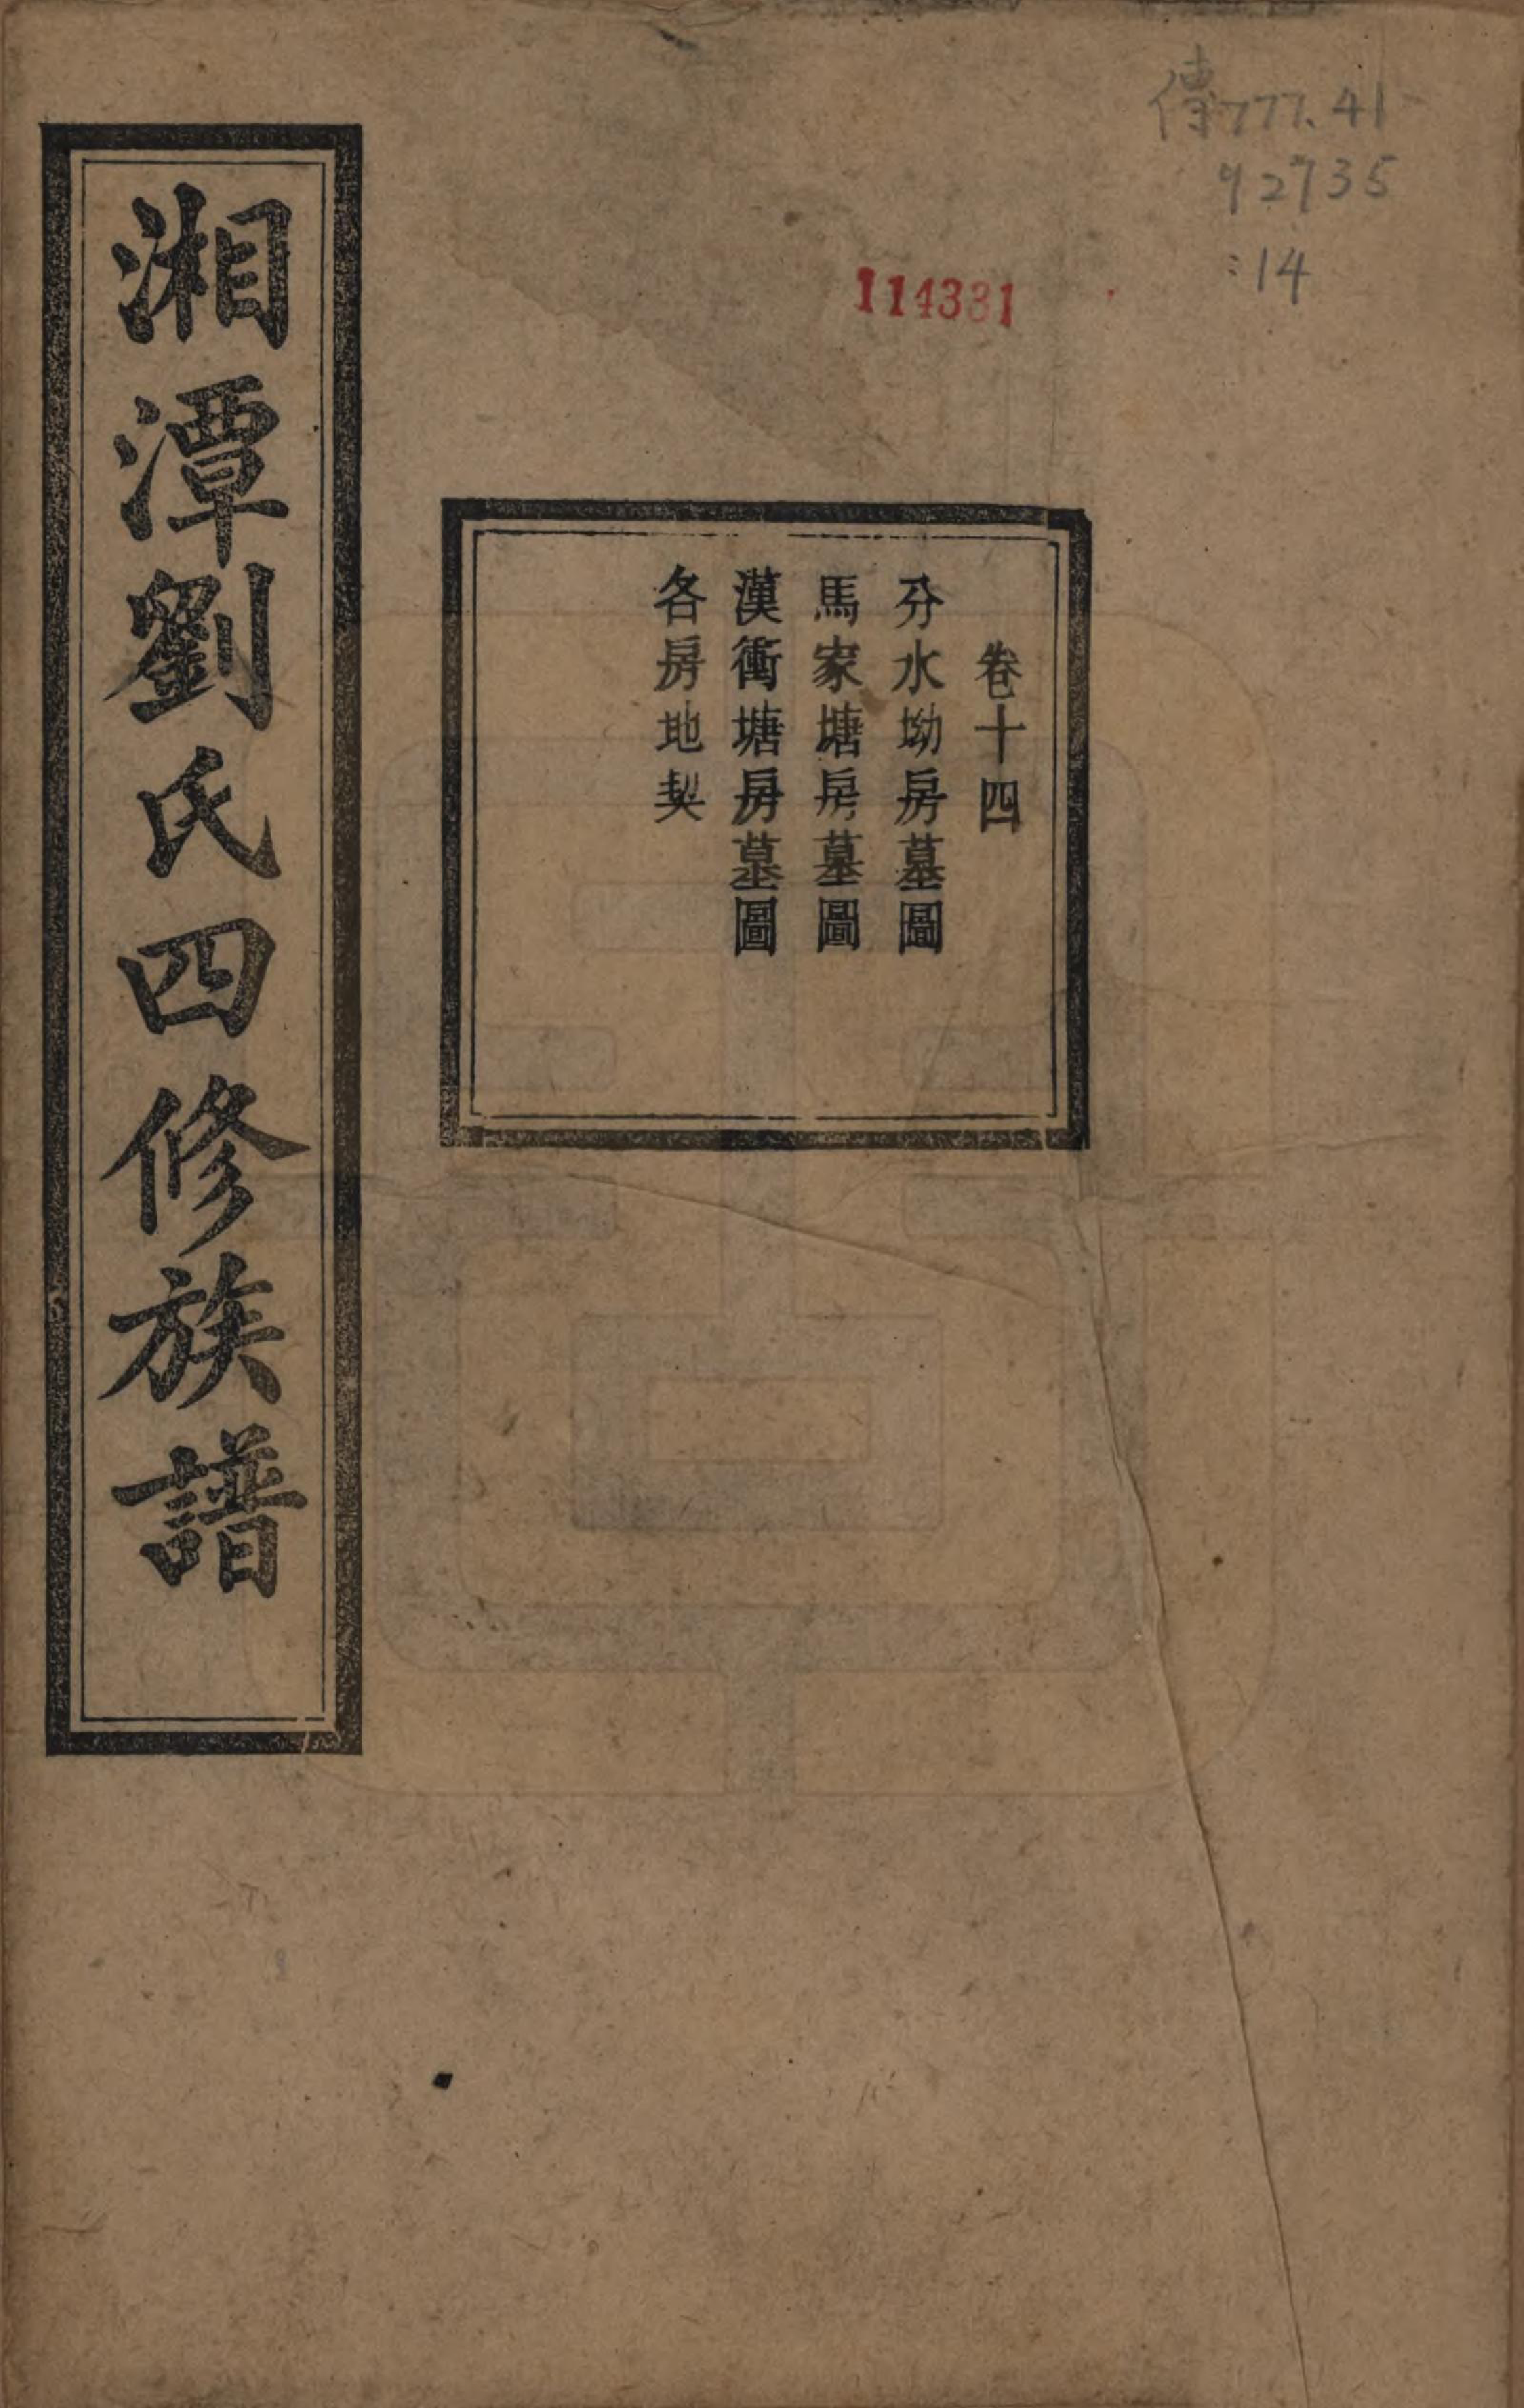 傳777.41
92735
:14
114331
卷十四
分水坳房墓圖
馬家塘房墓圖
漢衝塘房墓圖
各房地契
湘潭劉氏四修族譜